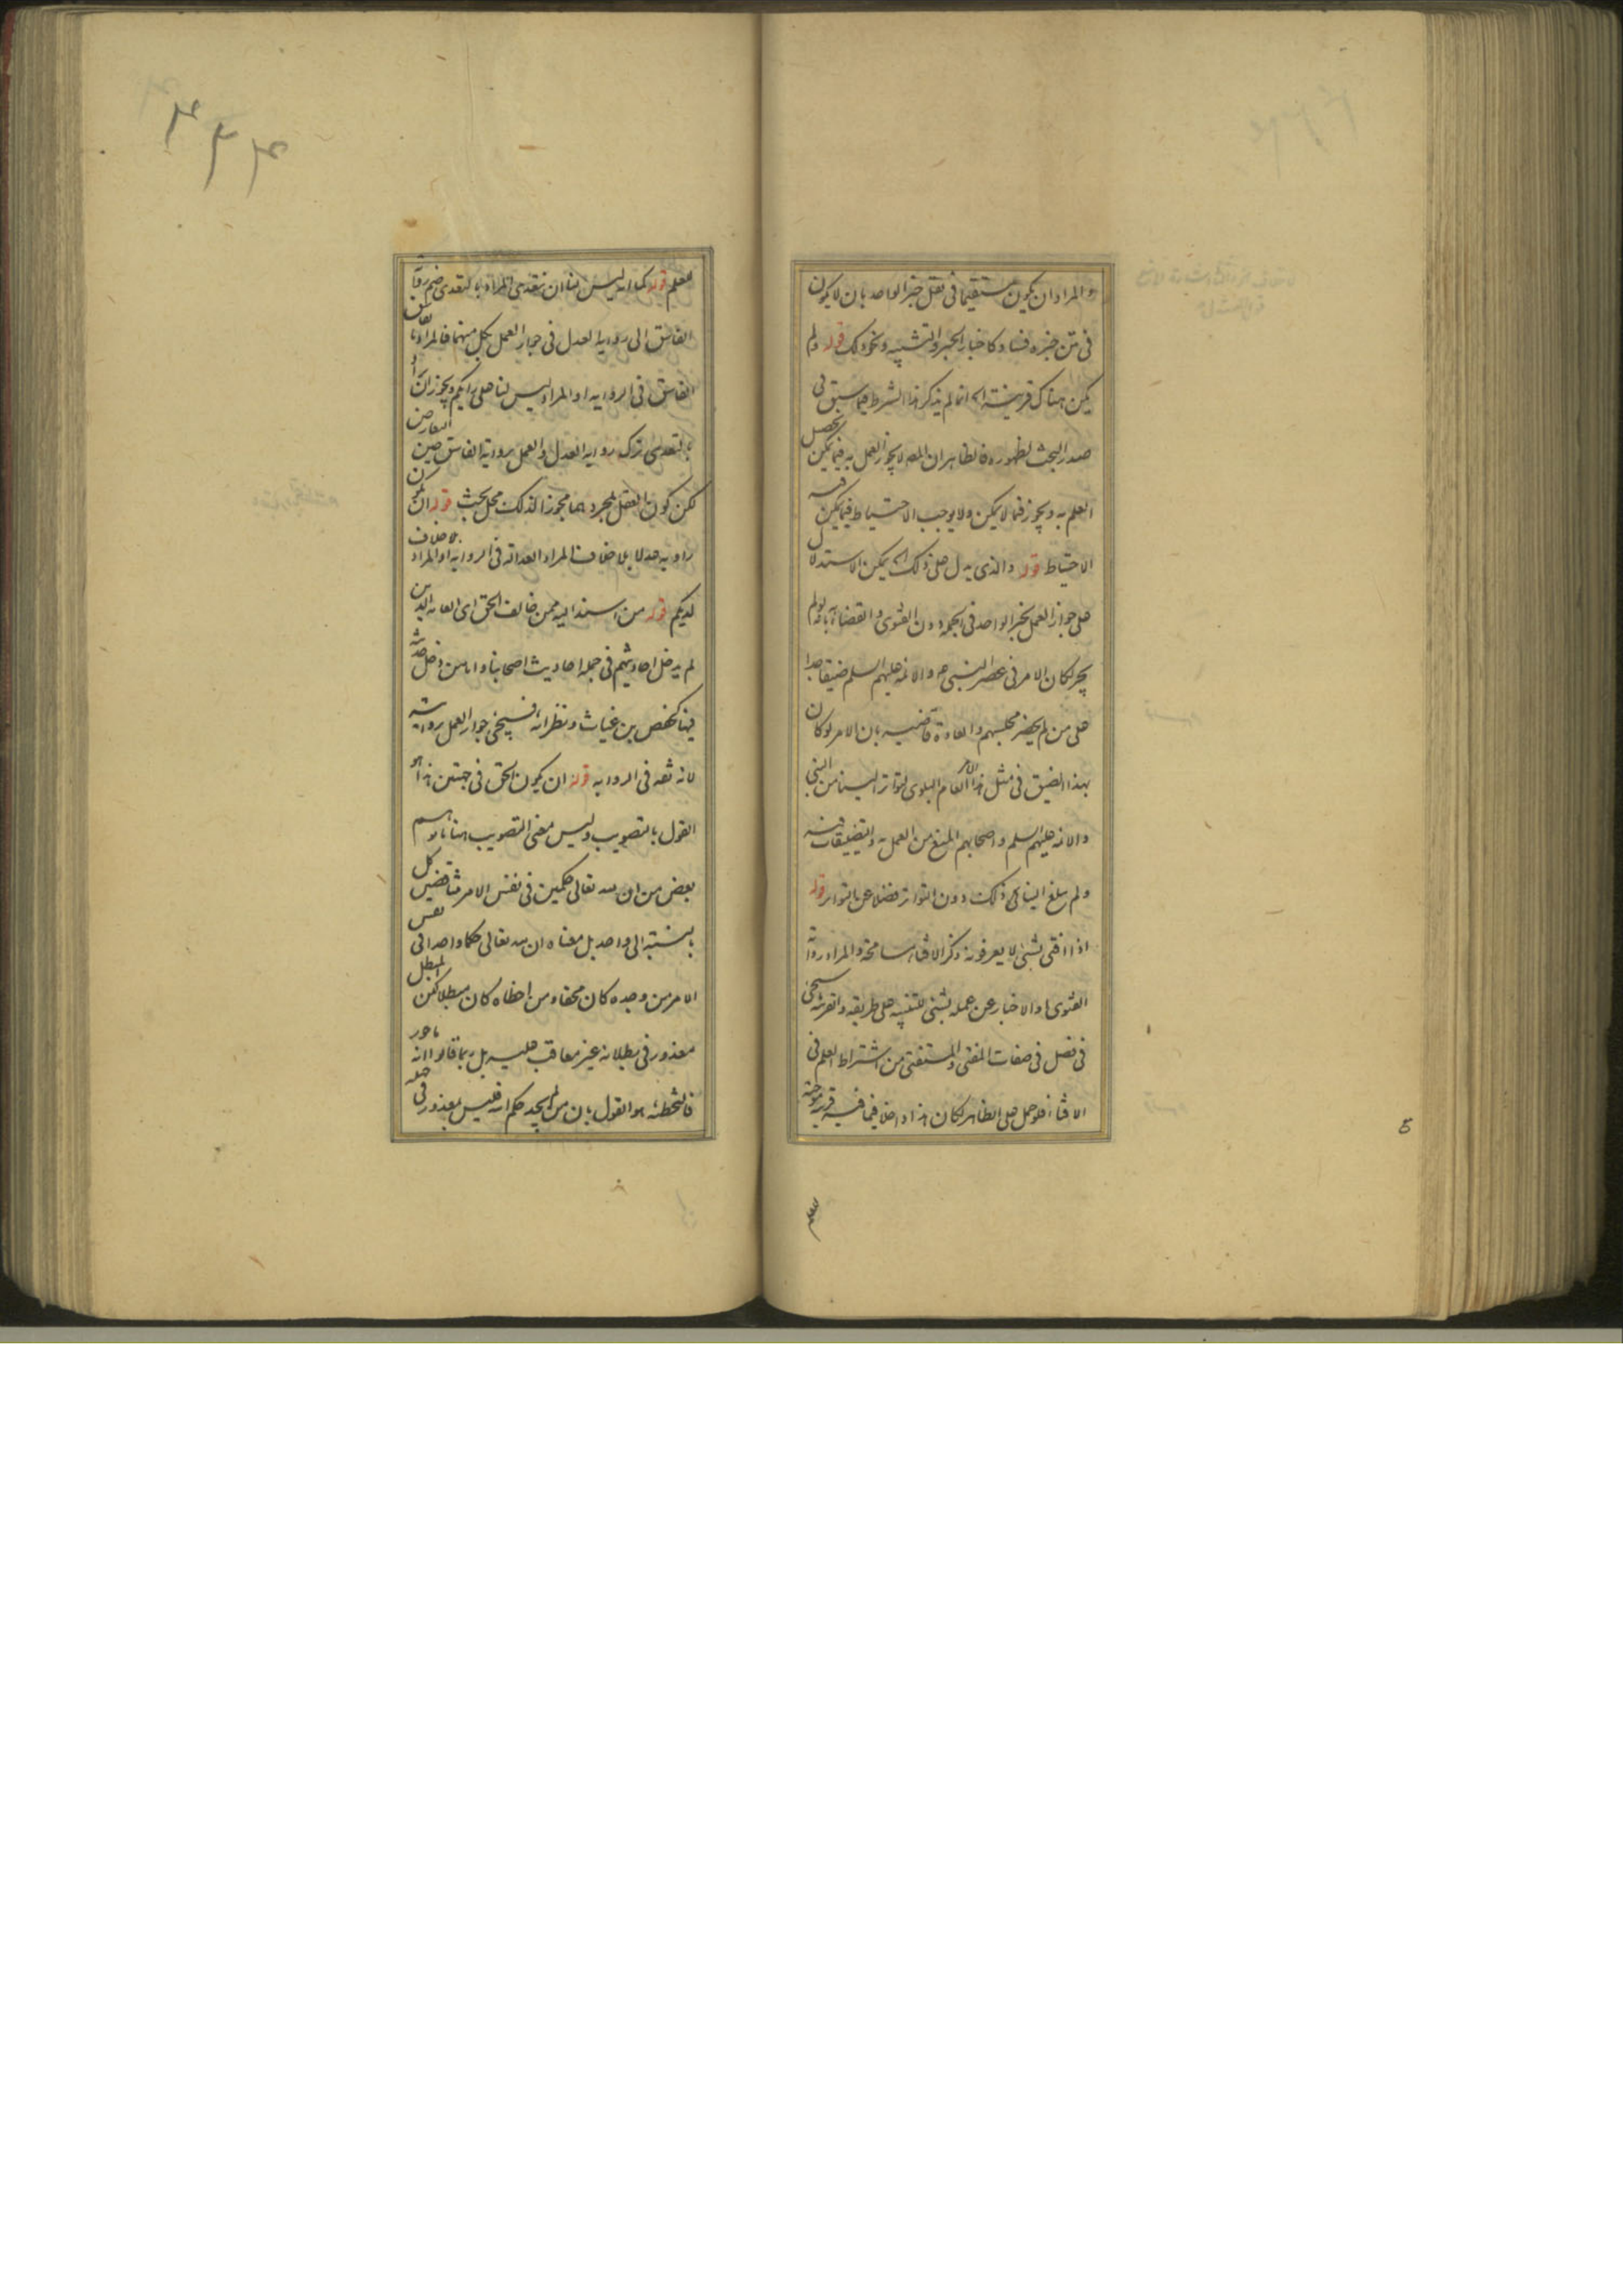 والمراد ان يكون مستقيما فى نقل خبر الواحد بان لا يكون
فى متن خبره فساد كاخبار الجبر والتشبيه ونحو ذلك قوله ولم
يكن هناك قرينة الخ انما لم يذكر هذا الشرط فيما سبق فى
صدر البحث لظهوره فالظاهر ان المص لا يجوز العمل به فيما يمكن تحصيل
العلم به ويجوز فيما لا يمكن ولا يوجب الاحتياط فيما يمكن فيه
الاحتياط قوله والذى يدل على ذلك الخ يمكن الاستدلال
على جواز العمل بخبر الواحد فى الجملة دون الفتوى والقضاء بانه لو لم
يجز لكان الامر فى عصر النبى ص والائمة عليهم السلم ضيقا جدا
على من لم يحضر مجلسهم والعادة قاضية بان الامر لو كان
بهذا الضيق فى مثل هذا الامر العام البلوى لتواتر الينا من النبى
والائمة عليهم السلم واصحابهم المنع من العمل به والتضييقات فيه
ولم يبلغ الينا فى ذلك دون التواتر فضلا عن التواتر قوله
اذا افتى بشىء لا يعرفونه ذكر الافتاء مسامحة والمراد رواية
الفتوى او الاخبار عن عمله بشىء للتنبيه على طريقه والقرينة سيجىء
فى فصل فى صفات المفتى والمستفتى من اشتراط العلم فى
الافتاء فلو حمل على الظاهر لكان هذا داخلا فيما فيه قرينة موجبة
للعلم قوله كما انه ليس لنا ان نتعدى المراد بالتعدى ضم رواية
الفاسق الى رواية العدل فى جواز العمل بكل منهما فالمراد بالفاسق
الفاسق فى الرواية او المراد ليس لنا على رايكم ويجوز ان يراد
بالتعدى ترك رواية العدل والعمل برواية الفاسق حين التعارض
لكن كون العقل بمجرده مجوزا لذلك محل بحث قوله ان يكون
راويه عدلا بلا خلاف المراد العدالة فى الرواية او المراد بلا خلاف
لديكم قوله من اسند اليه ممن خالف الحق اى العامة الذين
لم يدخل احاديثهم فى جملة احاديث اصحابنا واما من دخل حديثه
فيها كحفص بن غياث ونظرائه فسيجىء جواز العمل بروايته
لانه ثقة فى الرواية قوله ان يكون الحق فى جهتين هذا هو
القول بالتصويب وليس معنى التصويب هنا ما توهم
بعض من ان لله تعالى حكمين فى نفس الامر متناقضين كل
بالنسبة الى واحد بل معناه ان لله تعالى حكما واحدا فى نفس
الامر من وجده كان محقا ومن اخطاه كان مبطلا لكن المبطل
معذور فى بطلانه غير معاقب عليه بل ربما قالوا انه ماجور
فالتخطئة هو القول بان من لم يجد حكم الله فليس بمعذور فى جهله